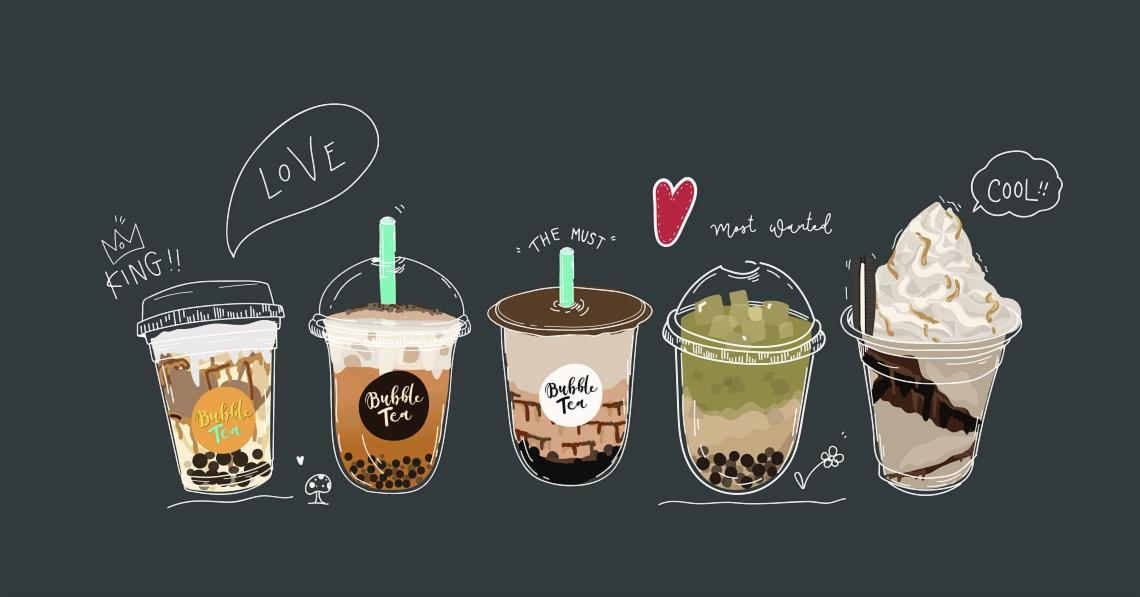 LOVE
KING!!
THE MUST
most wanted
COOL!!
Bubble
Tea
Bubble
Tea
Bubble
Tea